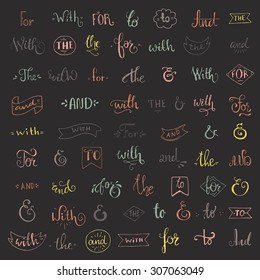 For With FOR to to And
The THE the for with the and
The with for for & With FOR
and AND with with to
with For AND &
For & TO with and the AND
AND and for the to for
& With & THE to to TO
with the and with for to And
shutterstock
IMAGE ID: 307063049
www.shutterstock.com